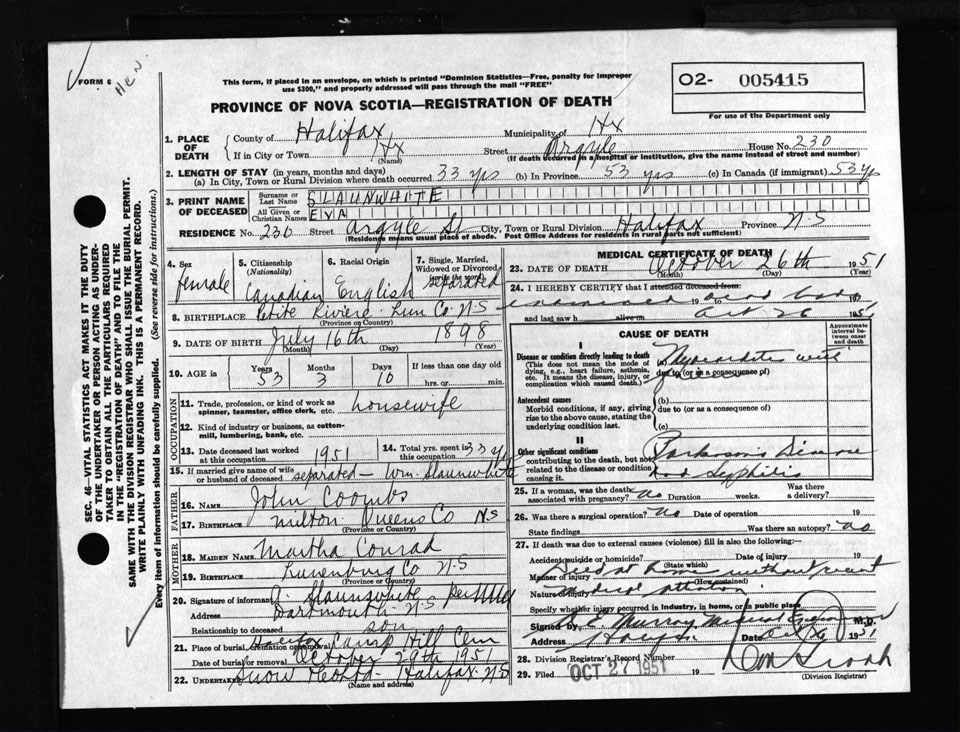 FORM 6
H.C.N.
This form, if placed in an envelope, on which is printed "Dominion Statistics—Free, penalty for improper
use $300," and properly addressed will pass through the mail "FREE"
PROVINCE OF NOVA SCOTIA—REGISTRATION OF DEATH
O2- 005415
For use of the Department only
1. PLACE OF DEATH County of Halifax Municipality of Hx
If in City or Town Hx (Name) Street Argyle House No. 230
(If death occurred in a hospital or institution, give the name instead of street and number)
2. LENGTH OF STAY (in years, months and days)
(a) In City, Town or Rural Division where death occurred 33 yrs (b) In Province 53 yrs (c) In Canada (if immigrant) 53 yrs
3. PRINT NAME OF DECEASED Surname or Last Name SLAUNWHITE
All Given or Christian Names EVA
RESIDENCE No. 230 Street Argyle St City, Town or Rural Division Halifax Province N-S
(Residence means usual place of abode. Post Office Address for residents in rural parts not sufficient)
4. Sex female
5. Citizenship (Nationality) Canadian
6. Racial Origin English
7. Single, Married, Widowed or Divorced (write the word) separated
8. BIRTHPLACE Petite Riviere - Lun Co. N-S
(Province or Country)
9. DATE OF BIRTH July 16th 1898
(Month) (Day) (Year)
10. AGE in Years 53 Months 3 Days 10 If less than one day old
hrs. or min.
OCCUPATION
11. Trade, profession, or kind of work as spinner, teamster, office clerk, etc. housewife
12. Kind of industry or business, as cotton-mill, lumbering, bank, etc.
13. Date deceased last worked at this occupation 1951
14. Total yrs. spent in this occupation 33 yrs
15. If married give name of wife or husband of deceased separated — Wm. Slaunwhite
FATHER
16. NAME John Coombs
17. BIRTHPLACE Milton Queens Co N.S
(Province or Country)
MOTHER
18. MAIDEN NAME Martha Conrad
19. BIRTHPLACE Lunenburg Co N-S
(Province or Country)
20. Signature of informant Slaunwhite per
Address Dartmouth - N-S
Relationship to deceased son
21. Place of burial, cremation or removal Halifax Camp Hill Cem
Date of burial or removal October 29th 1951
22. UNDERTAKER Snow Halifax N-S
(Name and address)
MEDICAL CERTIFICATE OF DEATH
23. DATE OF DEATH October 26th 1951
(Month) (Day) (Year)
24. I HEREBY CERTIFY that I attended deceased from:
examined dead body 19
and last saw h alive on Oct 26 1951
CAUSE OF DEATH
Approximate interval between onset and death
I
Disease or condition directly leading to death
(This does not mean the mode of dying, e.g., heart failure, asthma, etc. It means the disease, injury, or complication which caused death.)
(a) Myocarditis with
due to (or as a consequence of)
Antecedent causes
Morbid conditions, if any, giving rise to the above cause, stating the underlying condition last.
(b)
due to (or as a consequence of)
(c)
II
Other significant conditions contributing to the death, but not related to the disease or condition causing it.
Parkinson's Disease
and Syphilis
25. If a woman, was the death associated with pregnancy? No Duration weeks. Was there a delivery?
26. Was there a surgical operation? No Date of operation 19
State findings Was there an autopsy? No
27. If death was due to external causes (violence) fill in also the following:
Accident, suicide or homicide? Date of injury 19
(State which)
Manner of injury Dead at home without recent
(How sustained)
Nature of injury medical attention
Specify whether injury occurred in industry, in home, or in public place
Signed by E. Murray Medical Examiner M.D.
Address Halifax Date Oct 26 1951
28. Division Registrar's Record Number
29. Filed OCT 27 1951 19
(Division Registrar)
SEC. 46—VITAL STATISTICS ACT MAKES IT THE DUTY
OF THE UNDERTAKER OR PERSON ACTING AS UNDER-
TAKER TO OBTAIN ALL THE PARTICULARS REQUIRED
IN THE "REGISTRATION OF DEATH" AND TO FILE THE
SAME WITH THE DIVISION REGISTRAR WHO SHALL ISSUE THE BURIAL PERMIT.
WRITE PLAINLY WITH UNFADING INK. THIS IS A PERMANENT RECORD.
Every item of information should be carefully supplied. (See reverse side for instructions.)